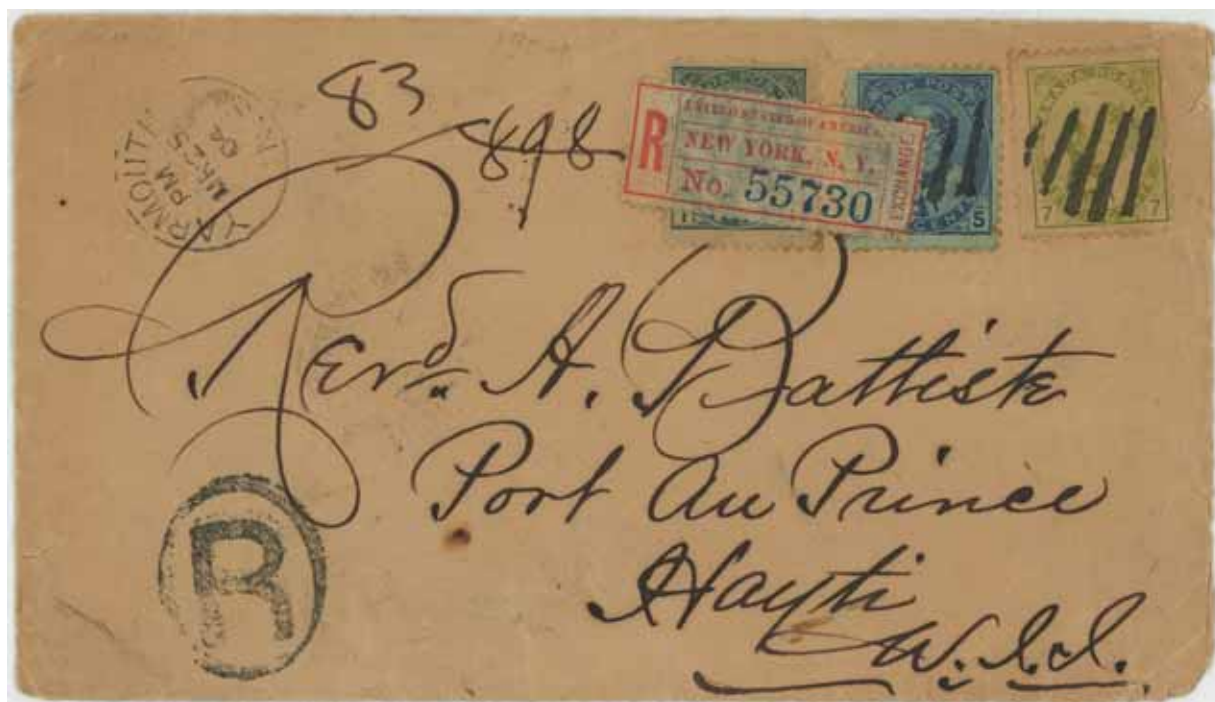 YARMOUTH N.S.
PM
MR 25
04
83
898
R
UNITED STATES OF AMERICA
NEW YORK, N. Y.
No. 55730
EXCHANGE
5
7 7
Revd. A. Battiste
Port Au Prince
Hayti
W. I.
R